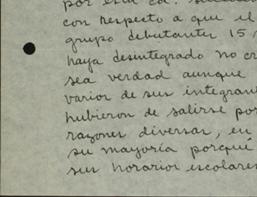 por esta cd.
con respecto a que el
grupo debutantes 15
haya desintegrado no
sea verdad aunque
varios de sus integran
hubieron de salirse por
razones diversas, en
su mayoría porqué
sus horarios escolares